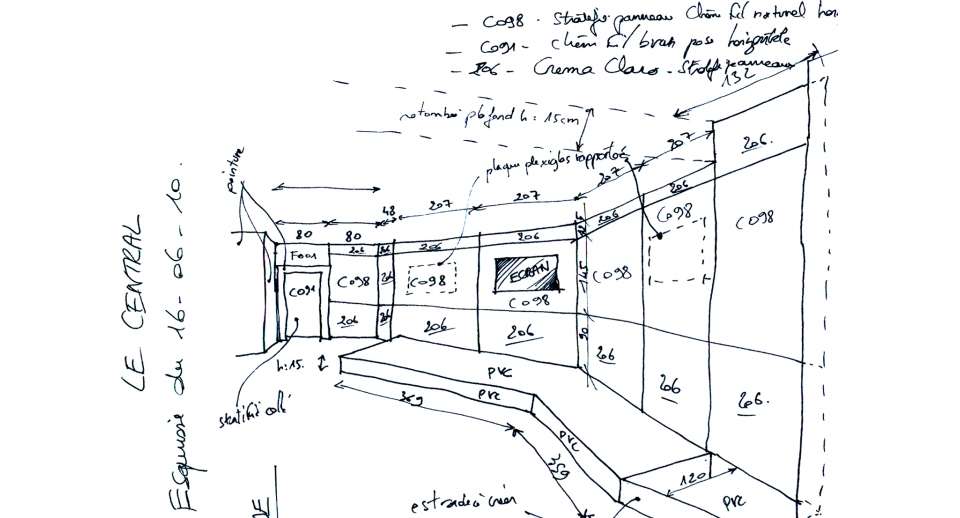 — C098 - Stratifié panneau Chêne naturel hor
— C091 - chêne brun pose horizontale
— 206 - Crema Claro - Stratifié panneaux
132
retombée plafond h: 15cm
plaque plexiglas rapportée
207
207
207
207
48
80
80
peinture
206.
206
206
206
206
206
206
F001
C091
C098
C098
C098
C098
C098
C098
ECRAN
145
90
206
206
206
206
206
206.
h:15.
PVC
PVC
PVC
PVC
359
359
120
stratifié collé
estrade à créer
LE CENTRAL
Esquisse du 16-06-10.